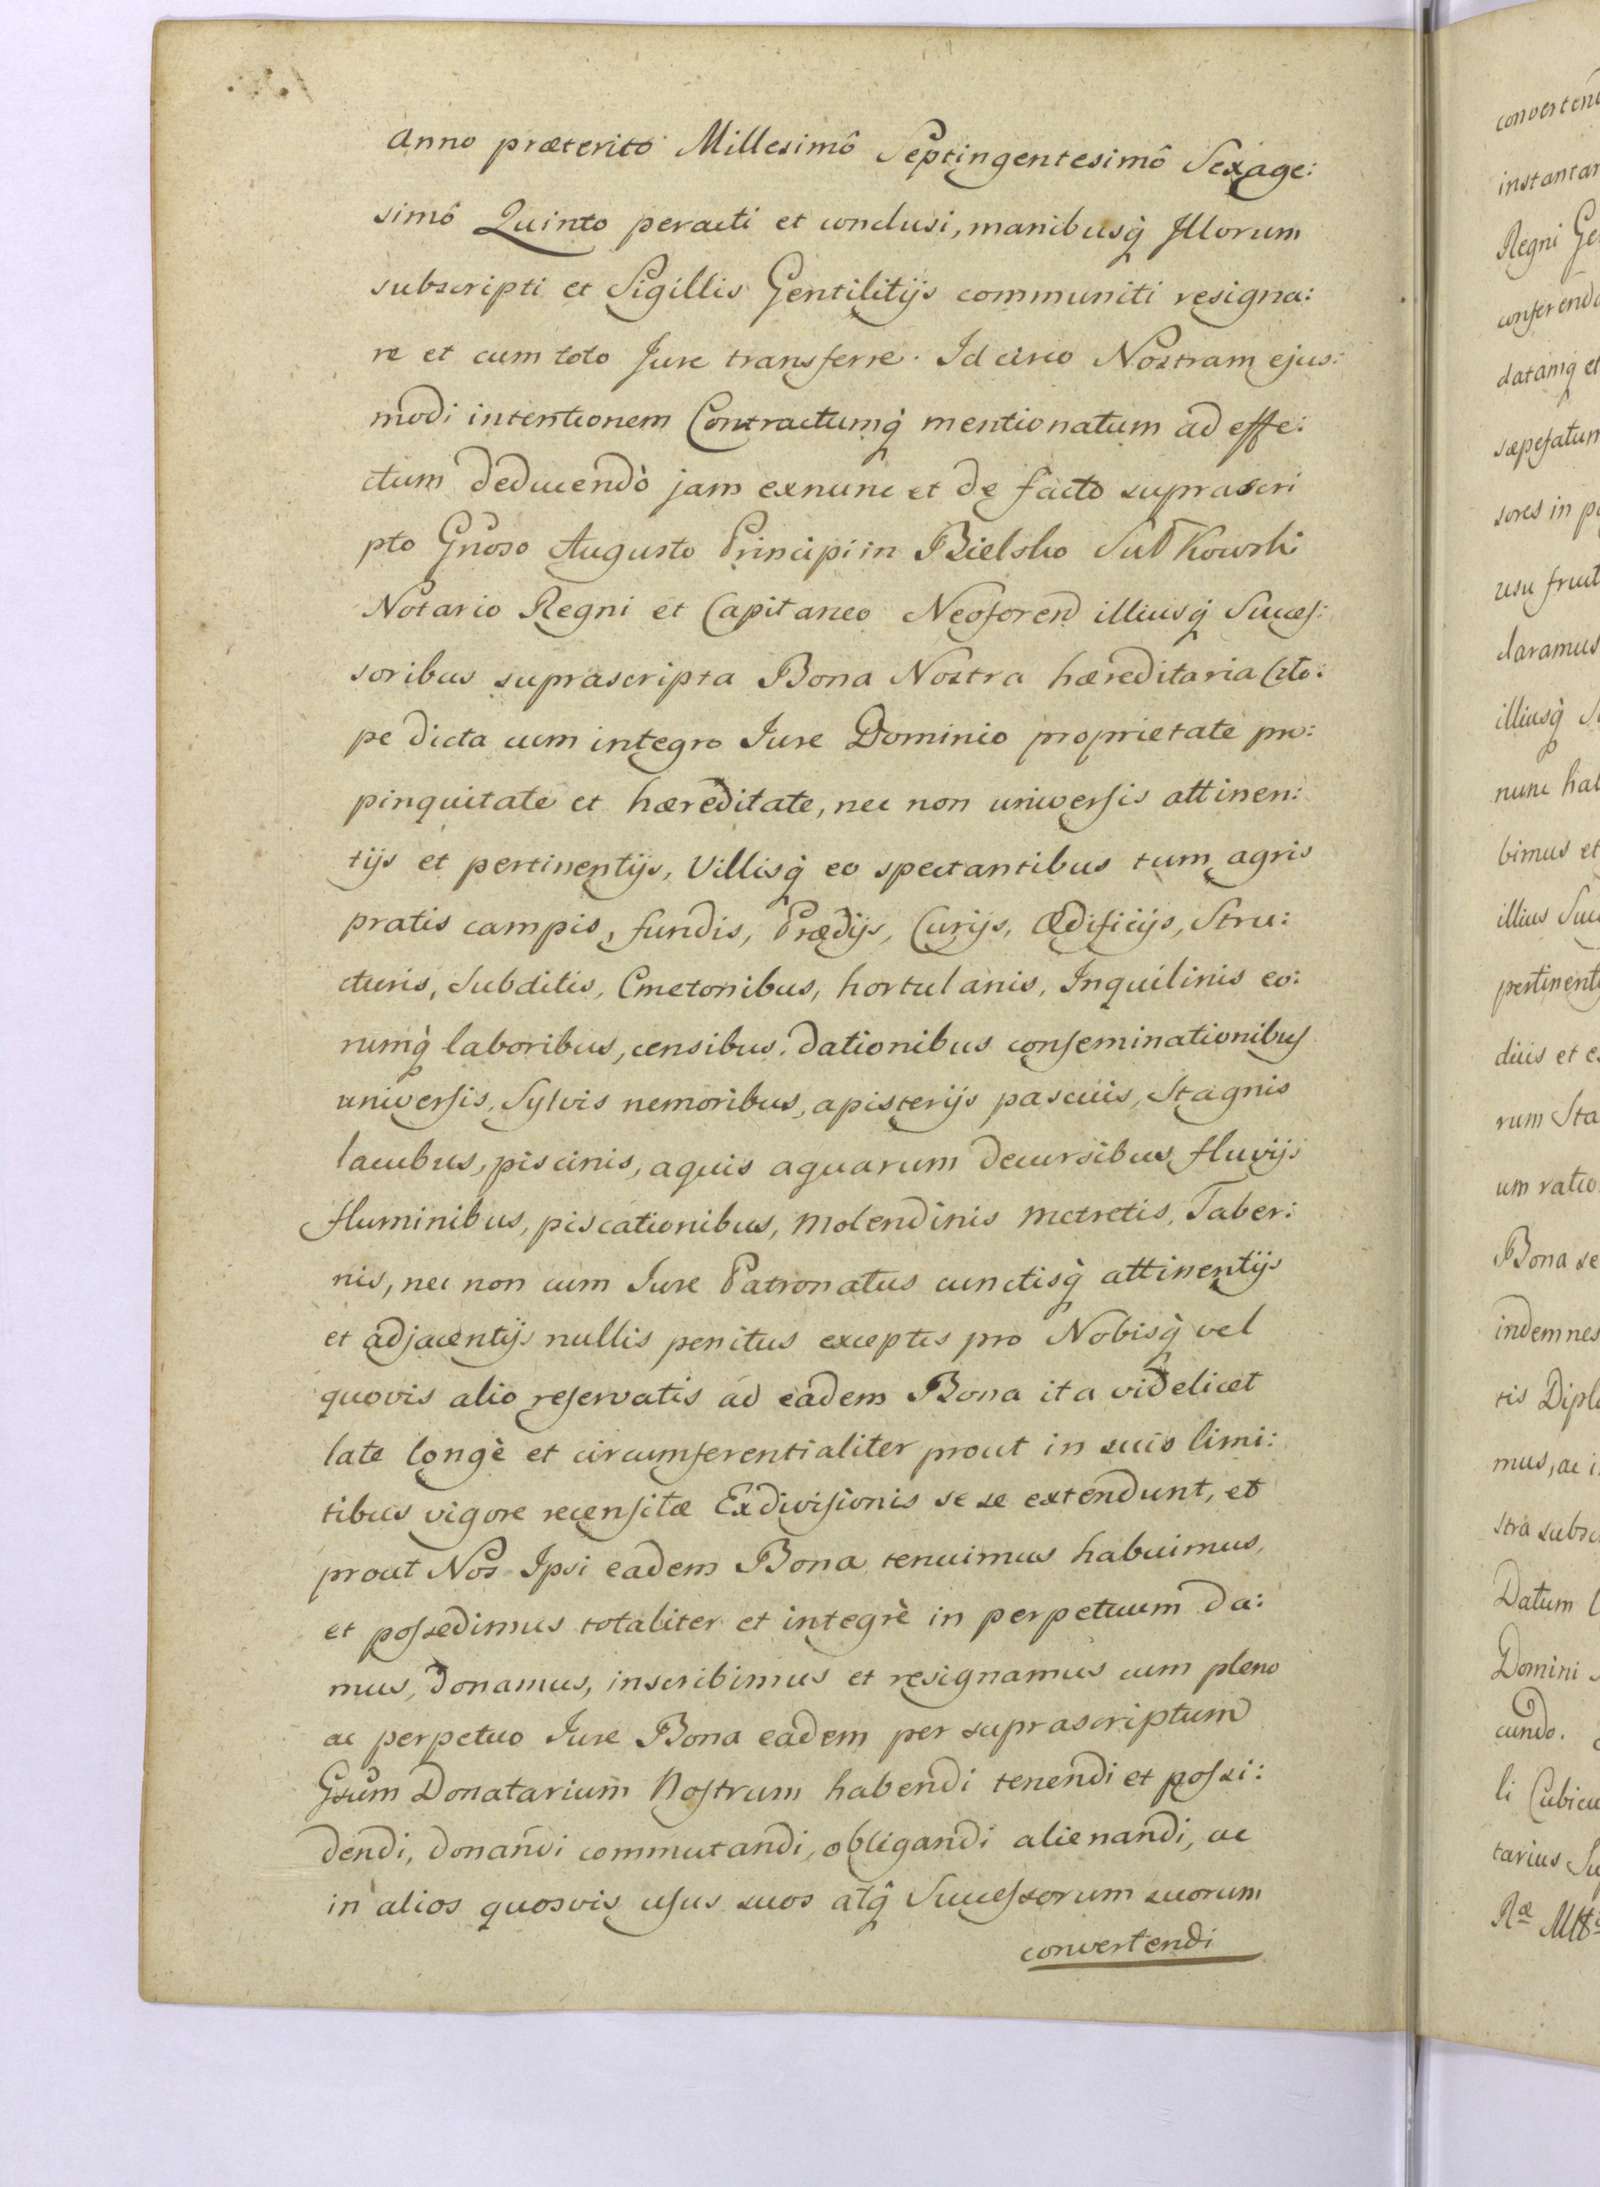 Anno præterito Millesimô Septingentesimô Sexage:
simô Quinto peracti et conclusi, manibusq̀ Illorum
subscripti et Sigillis Gentilitijs communiti resigna:
re et cum toto Jure transferre. Id circo Nostram ejus:
modi intentionem Contractumq̀ mentionatum ad effe:
ctum deducendò jam exnunc et de facto suprascri
pto Gnoso Augusto Principi in Bielsko Sułkowski
Notario Regni et Capitaneo Neoforen illiusq̀ Succes:
soribus suprascripta Bona Nostra hæreditaria
pe dicta cum integro Iure Dominio proprietate pro:
pinquitate et hæreditate, nec non universis attinen:
tijs et pertinentijs, Villisq̀ eo spectantibus tum agris
pratis campis, fundis, Prædijs, Curijs, Ædificijs, Stru:
cturis, Subditis, Cmetonibus, hortulanis, Inquilinis eo:
rumq̀ laboribus, censibus, dationibus conseminationibus
universis, Sylvis nemoribus, apisterijs pascuis, Stagnis
lacubus, piscinis, aquis aquarum decursibus fluvijs
fluminibus, piscationibus, Molendinis Metretis, Taber:
nis, nec non cum Iure Patronatus cunctisq̀ attinentijs
et adjacentijs nullis penitus exceptis pro Nobisq̀ vel
quovis alio reservatis ad eadem Bona ita videlicet
late longè et circumferentialiter prout in suis limi:
tibus vigore recensitæ Exdivisionis se se extendunt, et
prout Nos Ipsi eadem Bona tenuimus habuimus,
et possedimus totaliter et integrè in perpetuum da:
mus, donamus, inscribimus et resignamus cum pleno
ac perpetuo Iure Bona eadem per suprascriptum
Gsum Donatarium Nostrum habendi tenendi et possi:
dendi, donandi commutandi, obligandi alienandi, ac
in alios quosvis usus suos atq̀ Successorum suorum
convertendi
Regni
sæpefatum
sores in
usu
claramus
illiusq̀
nunc
bimus et
illius
rum
um
Bona se
indemnes
mus, ac
Datum
Domini
cundo.
li
tarius